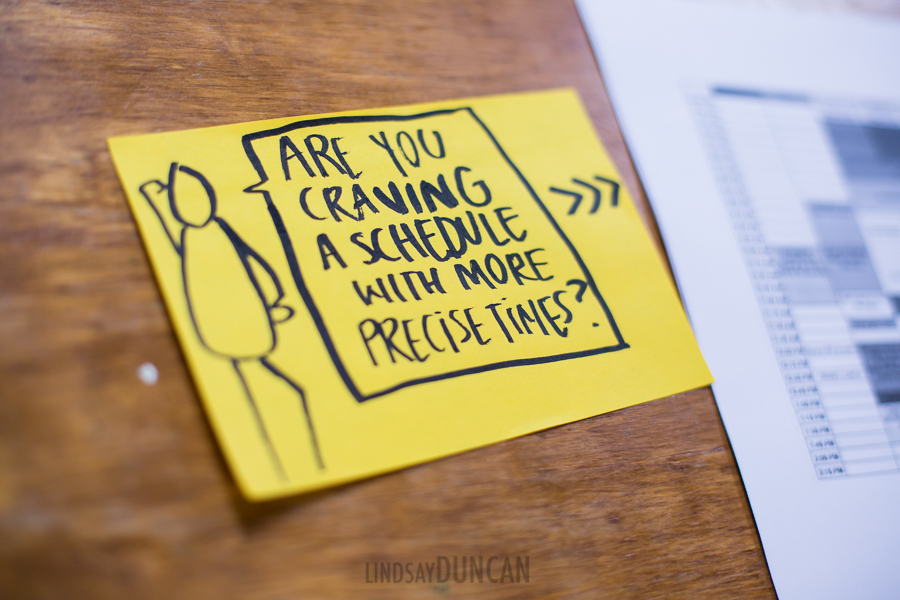 ARE YOU
CRAVING
A SCHEDULE
WITH MORE
PRECISE TIMES?
>>>>
LINDSAYDUNCAN